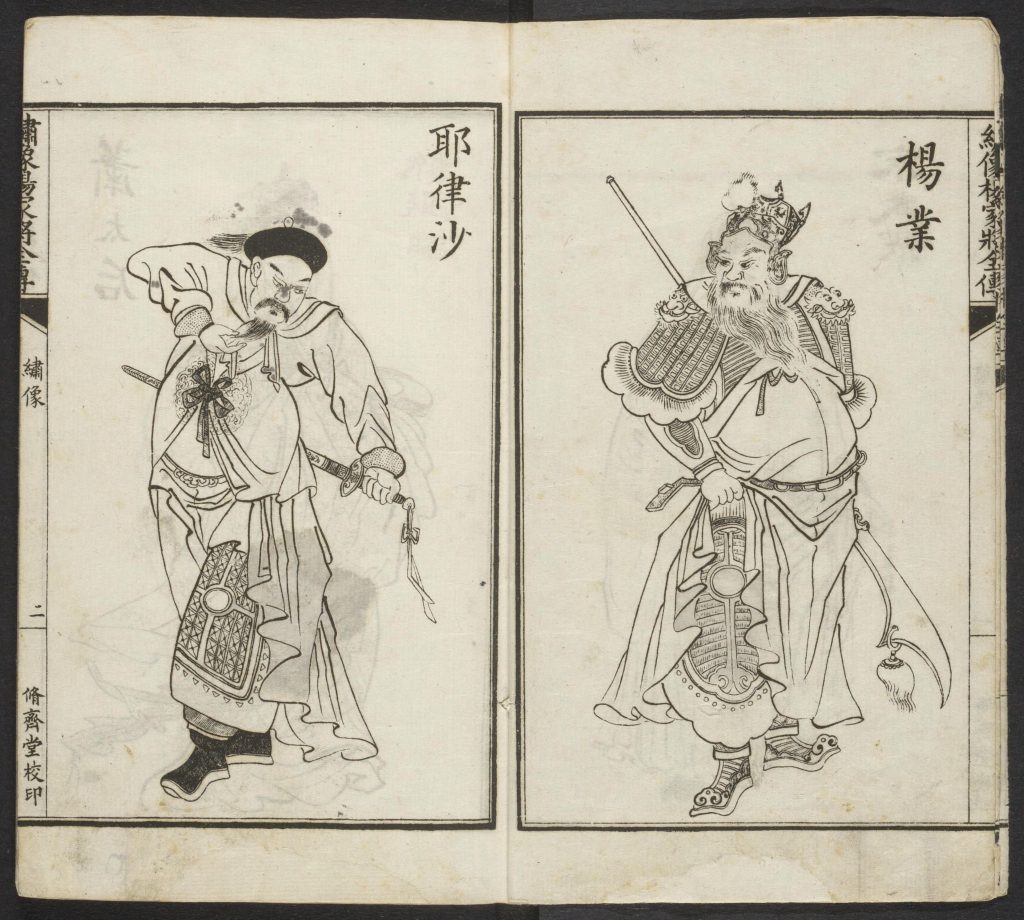 繡像楊家將全傳
楊業
耶律沙
繡像楊家將全傳
繡像
二
脩齊堂校印
蕭太后